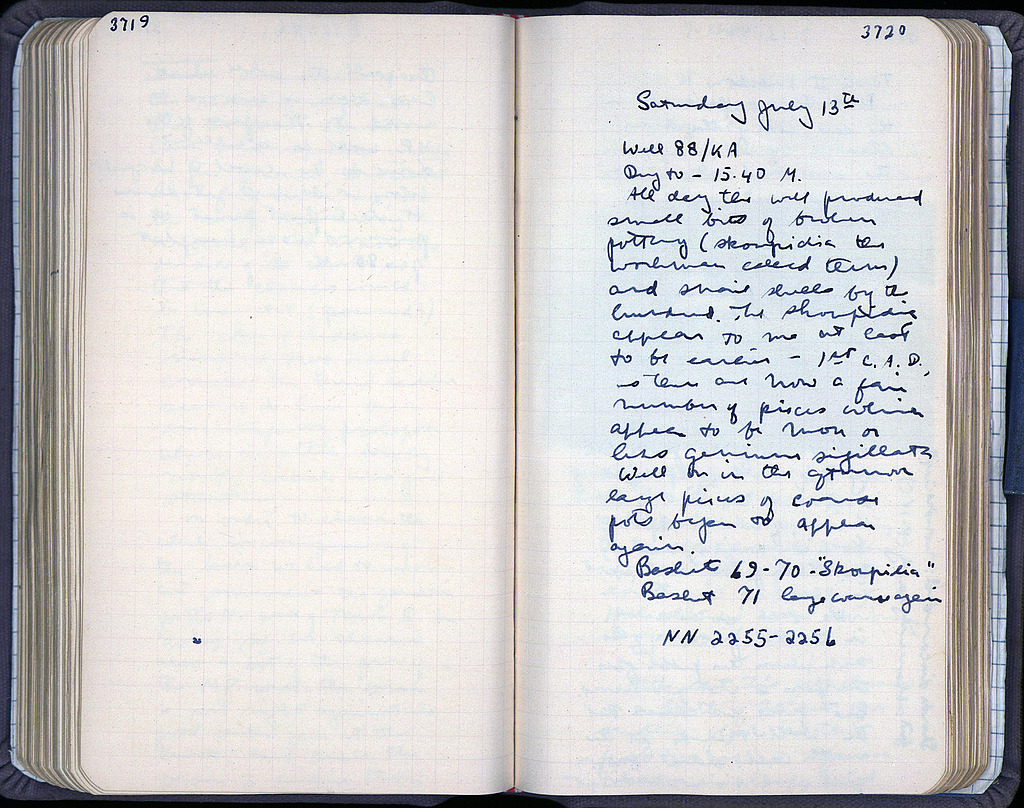 3719
3720
Saturday July 13th
Well 88/KA
Dug to - 15.40 M.
All day the well produced
small bits of broken
pottery (skoupidia the
workmen called them)
and snail shells by the
hundred. The skoupidia
appear to me at least
to be earlier - 1st C. A.D.,
as there are now a fair
number of pieces which
appear to be more or
less genuine sigillata
Well on in the afternoon
large pieces of coarse
pots began to appear
again.
Basket 69-70 - "Skoupidia"
Basket 71 large coarse again
NN 2255-2256